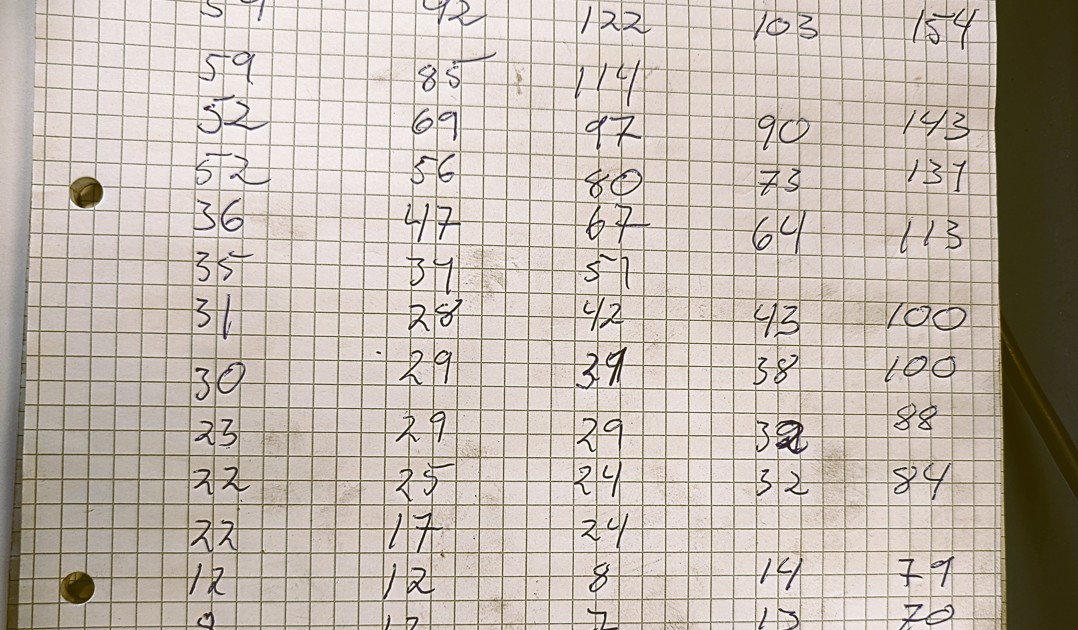 59 92 122 103 154
59 85 114
52 69 97 90 143
52 56 80 73 137
36 47 67 64 113
35 39 51
31 28 42 43 100
30 29 39 38 100
23 29 29 32 88
22 25 24 32 84
22 17 24
12 12 8 14 79
70